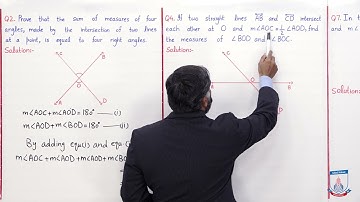 Q2. Prove that the sum of measures of four
angles, made by the intersection of two lines
at a point, is equal to four right angles.
Solution:-
C
B
O
A
D
m∠AOC+m∠AOD=180° —(i)
m∠AOD+m∠BOD=180° —(ii)
By adding equ(i) and equ
m∠AOC+m∠AOD+m∠AOD+m∠BO
Q4. If two straight lines AB and CD intersect
each other at O and m∠AOC=½∠AOD, find
the measures of ∠BOD and ∠BOC.
Solution:-
C
B
D
Q7.
and m∠
Solution: